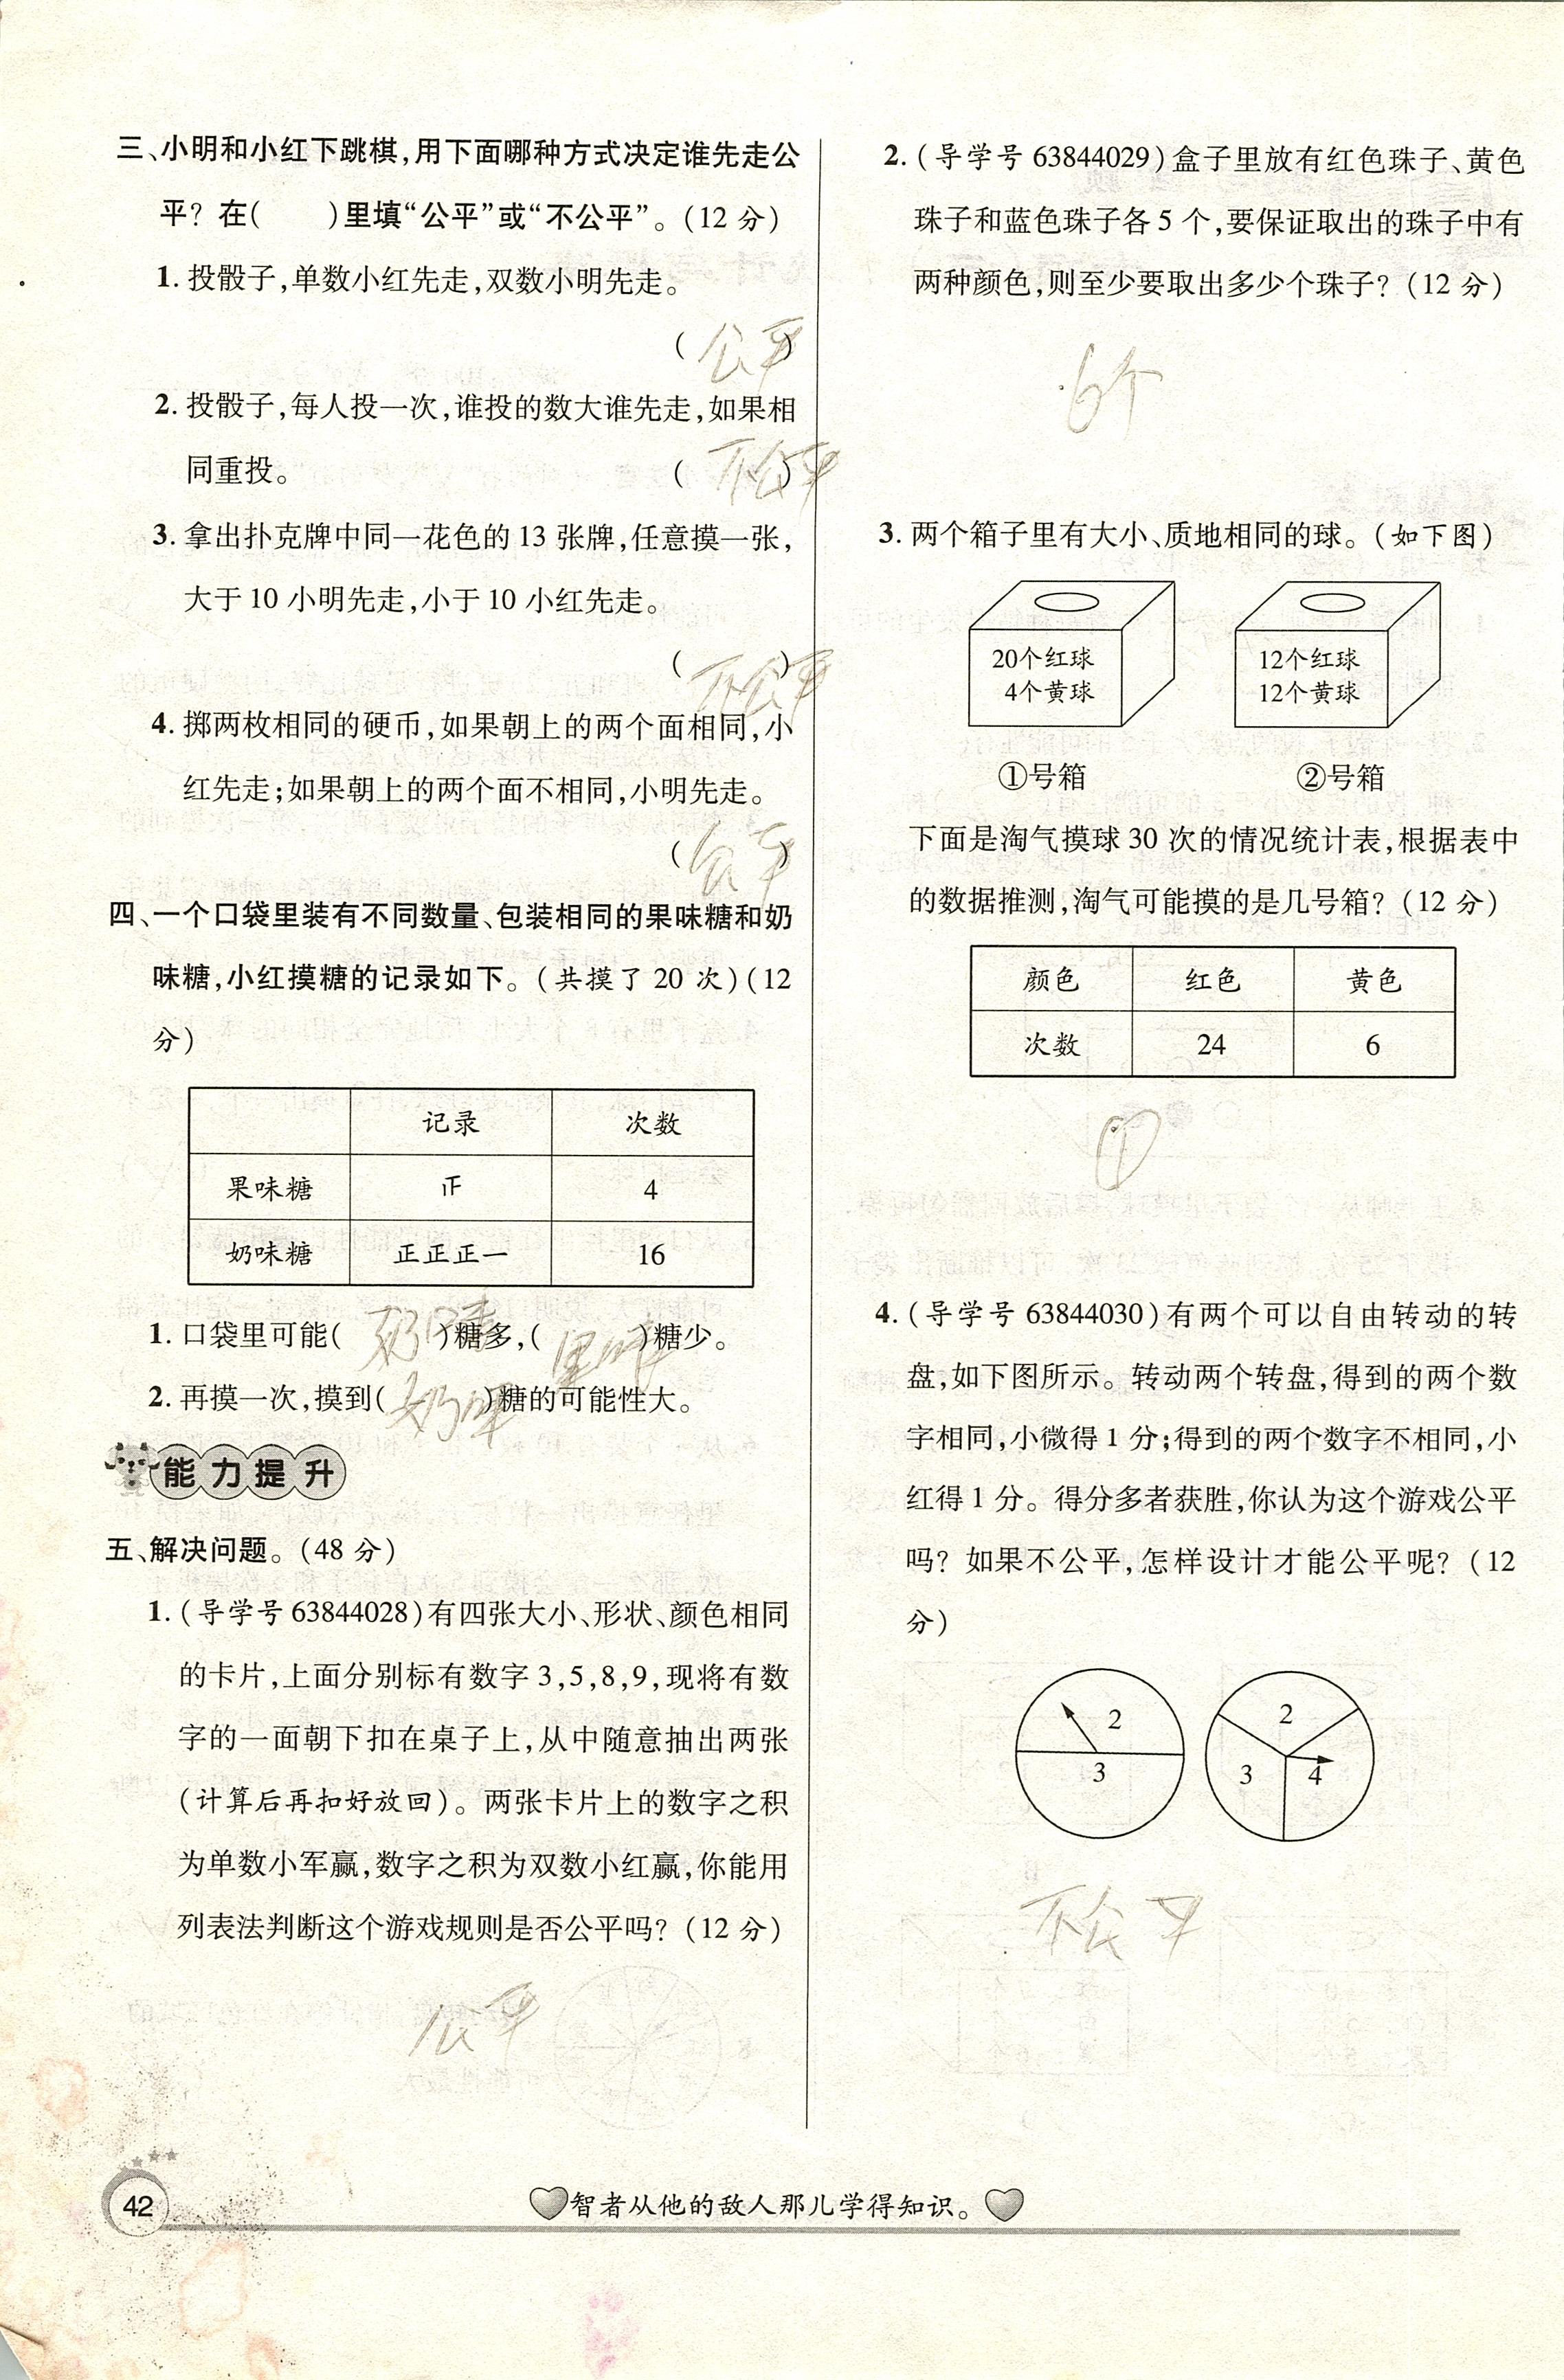 三、小明和小红下跳棋,用下面哪种方式决定谁先走公
平? 在(公平)里填“公平”或“不公平”。(12 分)
1. 投骰子,单数小红先走,双数小明先走。
(公平)
2. 投骰子,每人投一次,谁投的数大谁先走,如果相
同重投。 (不公平)
3. 拿出扑克牌中同一花色的 13 张牌,任意摸一张,
大于 10 小明先走,小于 10 小红先走。
(不公平)
4. 掷两枚相同的硬币,如果朝上的两个面相同,小
红先走;如果朝上的两个面不相同,小明先走。
(公平)
四、一个口袋里装有不同数量、包装相同的果味糖和奶
味糖,小红摸糖的记录如下。(共摸了 20 次)(12
分)
记录 次数
果味糖 4
奶味糖 正正正一 16
1. 口袋里可能(奶味)糖多,(果味)糖少。
2. 再摸一次,摸到(奶味)糖的可能性大。
能力提升
五、解决问题。(48 分)
1. (导学号 63844028)有四张大小、形状、颜色相同
的卡片,上面分别标有数字 3,5,8,9,现将有数
字的一面朝下扣在桌子上,从中随意抽出两张
(计算后再扣好放回)。两张卡片上的数字之积
为单数小军赢,数字之积为双数小红赢,你能用
列表法判断这个游戏规则是否公平吗? (12 分)
公平
2. (导学号 63844029)盒子里放有红色珠子、黄色
珠子和蓝色珠子各 5 个,要保证取出的珠子中有
两种颜色,则至少要取出多少个珠子? (12 分)
6个
3. 两个箱子里有大小、质地相同的球。(如下图)
20个红球
4个黄球
12个红球
12个黄球
①号箱 ②号箱
下面是淘气摸球 30 次的情况统计表,根据表中
的数据推测,淘气可能摸的是几号箱? (12 分)
颜色 红色 黄色
次数 24 6
①
4. (导学号 63844030)有两个可以自由转动的转
盘,如下图所示。转动两个转盘,得到的两个数
字相同,小微得 1 分;得到的两个数字不相同,小
红得 1 分。得分多者获胜,你认为这个游戏公平
吗? 如果不公平,怎样设计才能公平呢? (12
分)
2
3
2
3 4
不公平
42 智者从他的敌人那儿学得知识。